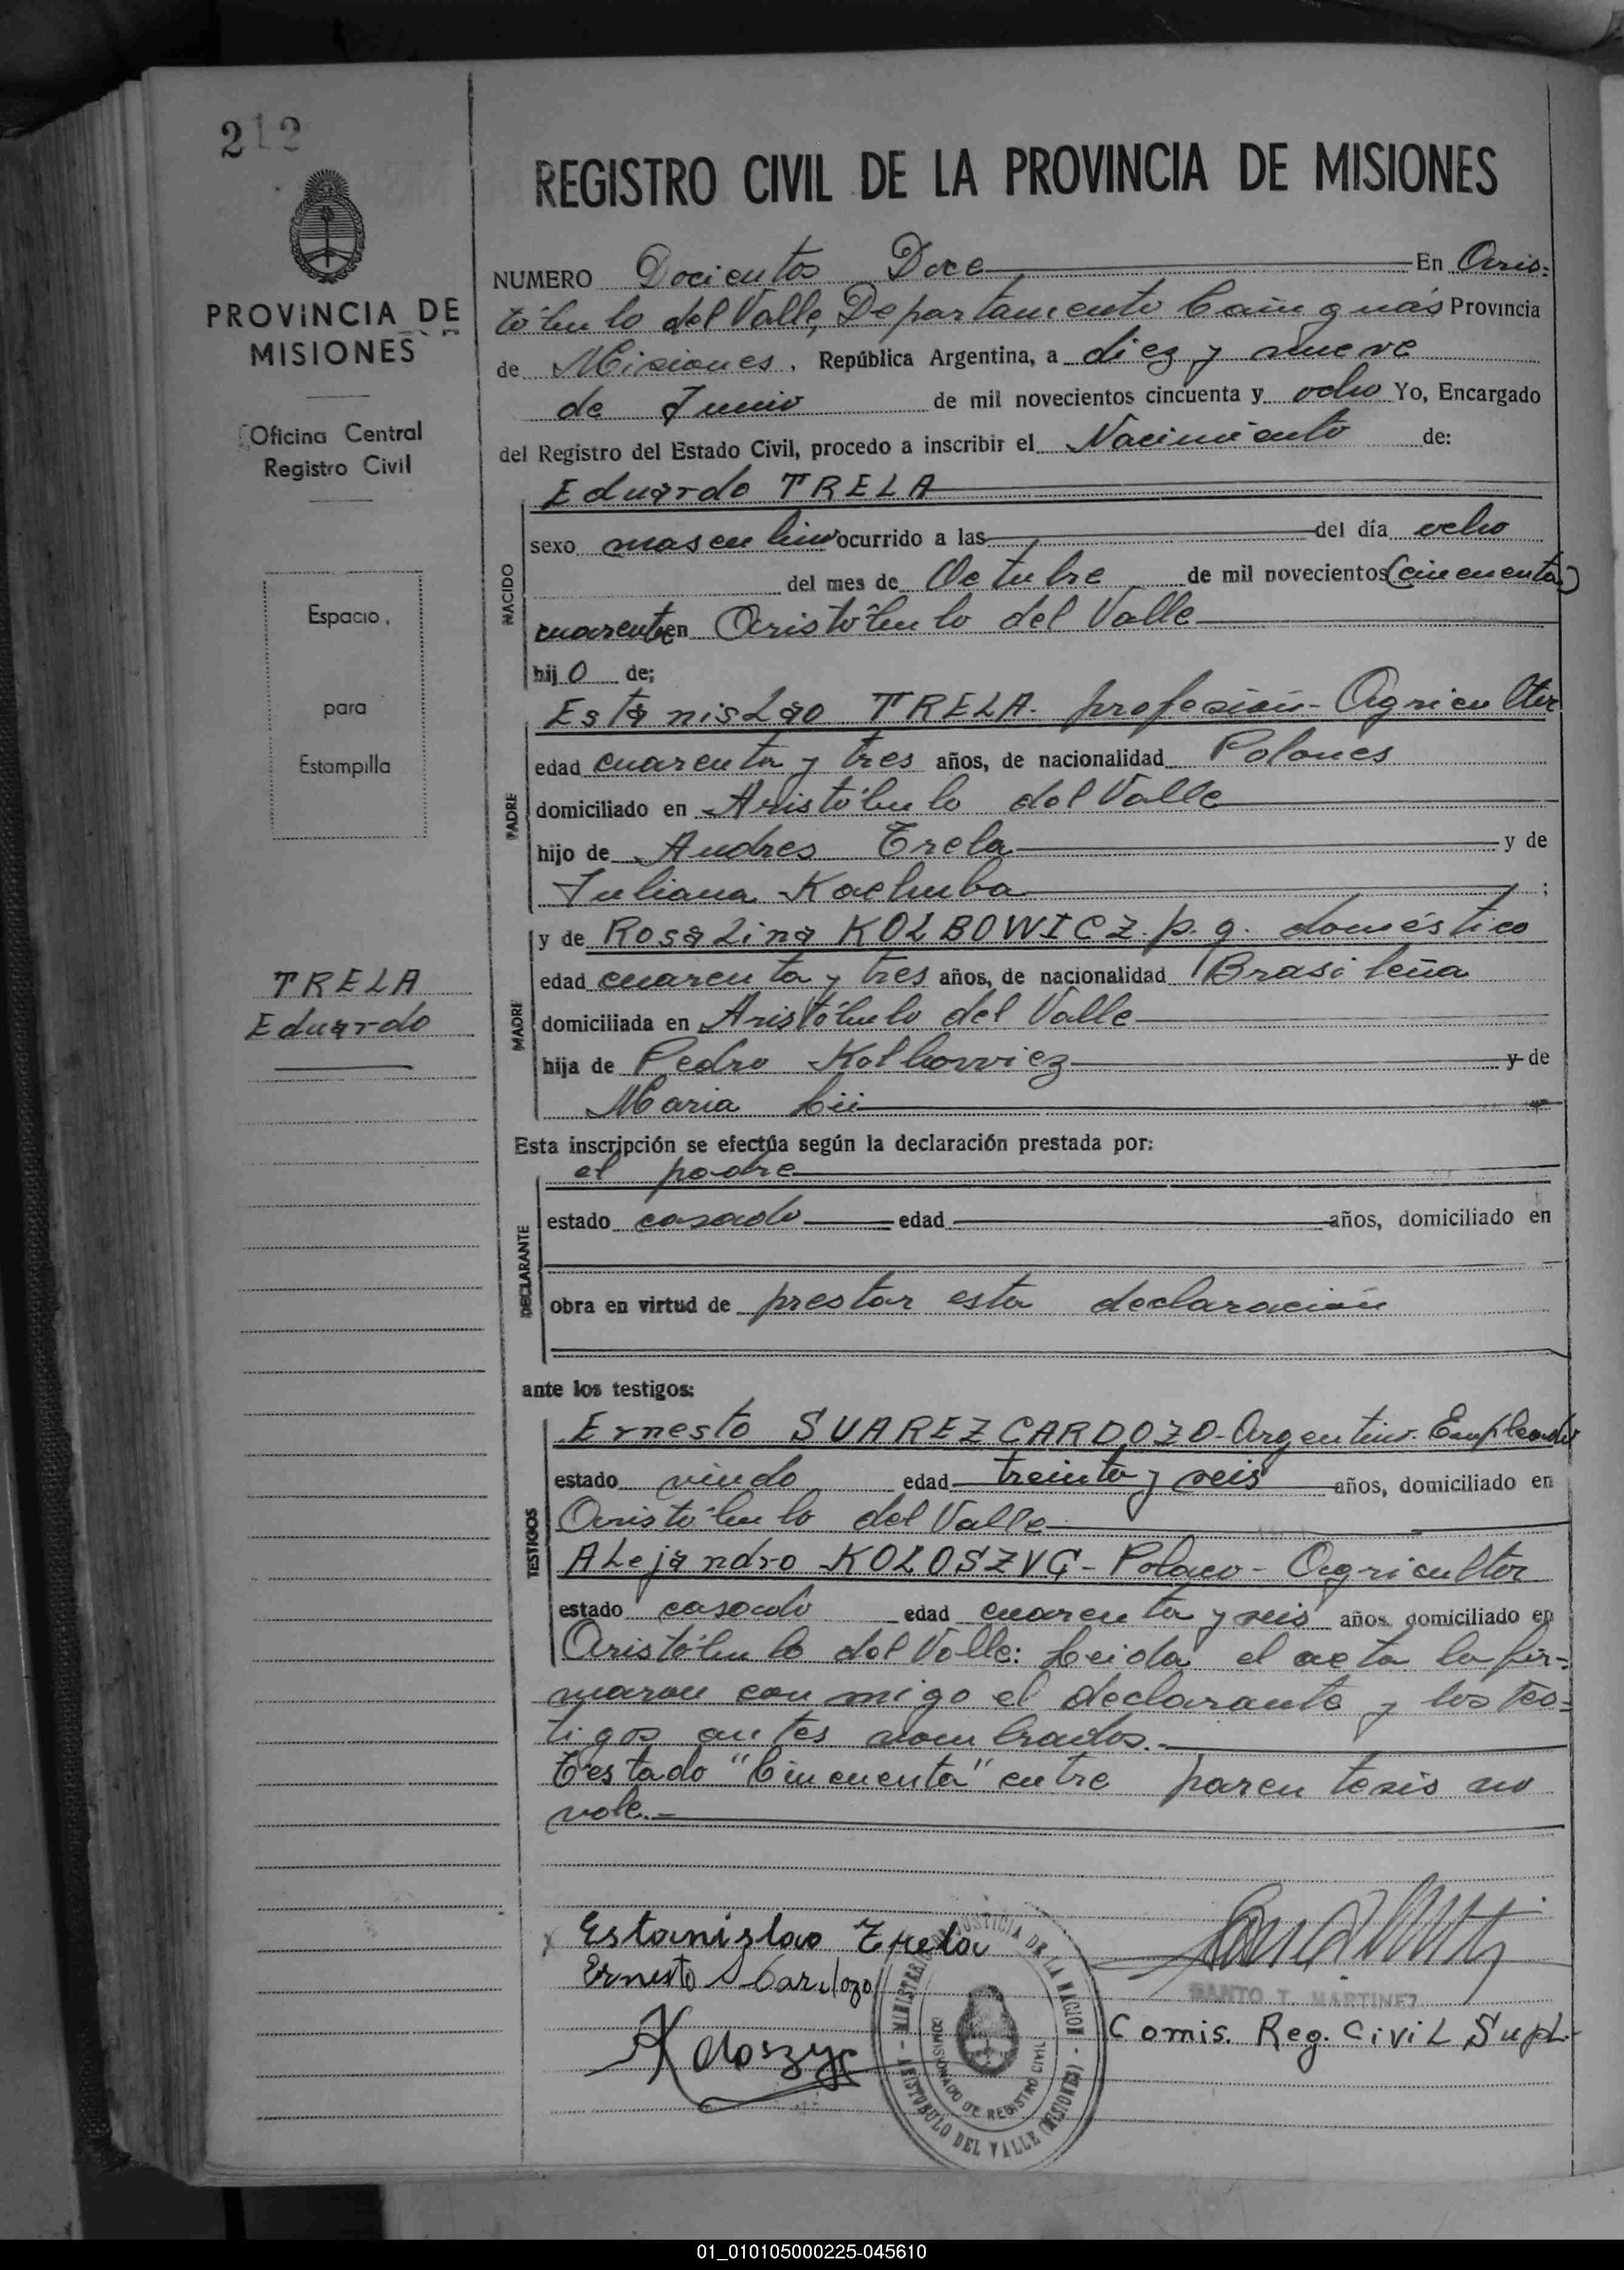 212
PROVINCIA DE
MISIONES
Oficina Central
Registro Civil
Espacio
para
Estampilla
TRELA
Eduardo
REGISTRO CIVIL DE LA PROVINCIA DE MISIONES
NUMERO Docientos Doce En Aris-
tóbulo del Valle, Departamento Cainguás Provincia
de Misiones, República Argentina, a diez y nueve
de Junio de mil novecientos cincuenta y ocho Yo, Encargado
del Registro del Estado Civil, procedo a inscribir el Nacimiento de:
Eduardo TRELA
NACIDO
sexo masculino ocurrido a las del día ocho
del mes de Octubre de mil novecientos (cincuenta)
cuarenta en Aristóbulo del Valle
hijo de;
Estanislao TRELA. profesión- Agricultor
PADRE
edad cuarenta y tres años, de nacionalidad Polones
domiciliado en Aristóbulo del Valle
hijo de Andres Trela y de
Juliana Kachuba ;
y de Rosalina KOLBOWICZ. p. q. doméstico
MADRE
edad cuarenta y tres años, de nacionalidad Brasileña
domiciliada en Aristóbulo del Valle
hija de Pedro Kolbowicz y de
Maria
Esta inscripción se efectúa según la declaración prestada por:
el padre
DECLARANTE
estado casado edad años, domiciliado en
obra en virtud de prestar esta declaración
ante los testigos:
Ernesto SUAREZ CARDOZO- Argentino- Empleado
TESTIGOS
estado viudo edad treinta y seis años, domiciliado en
Aristóbulo del Valle
Alejandro KOLOSZYC- Polaco- Agricultor
estado casado edad cuarenta y seis años domiciliado en
Aristóbulo del Valle: Leida el acta la fir-
maron con migo el declarante y los tes-
tigos antes nombrados.-
Testado "Cincuenta" entre parentesis no
vale.-
Estanislao Trela
Ernesto S Cardozo
AKoloszyc
MINISTERIO DE JUSTICIA DE LA NACION
COMISIONADO DE REGISTRO CIVIL
ARISTOBULO DEL VALLE (MISIONES)
SANTO T. MARTINEZ
Comis. Reg. Civil Supl.
01_010105000225-045610